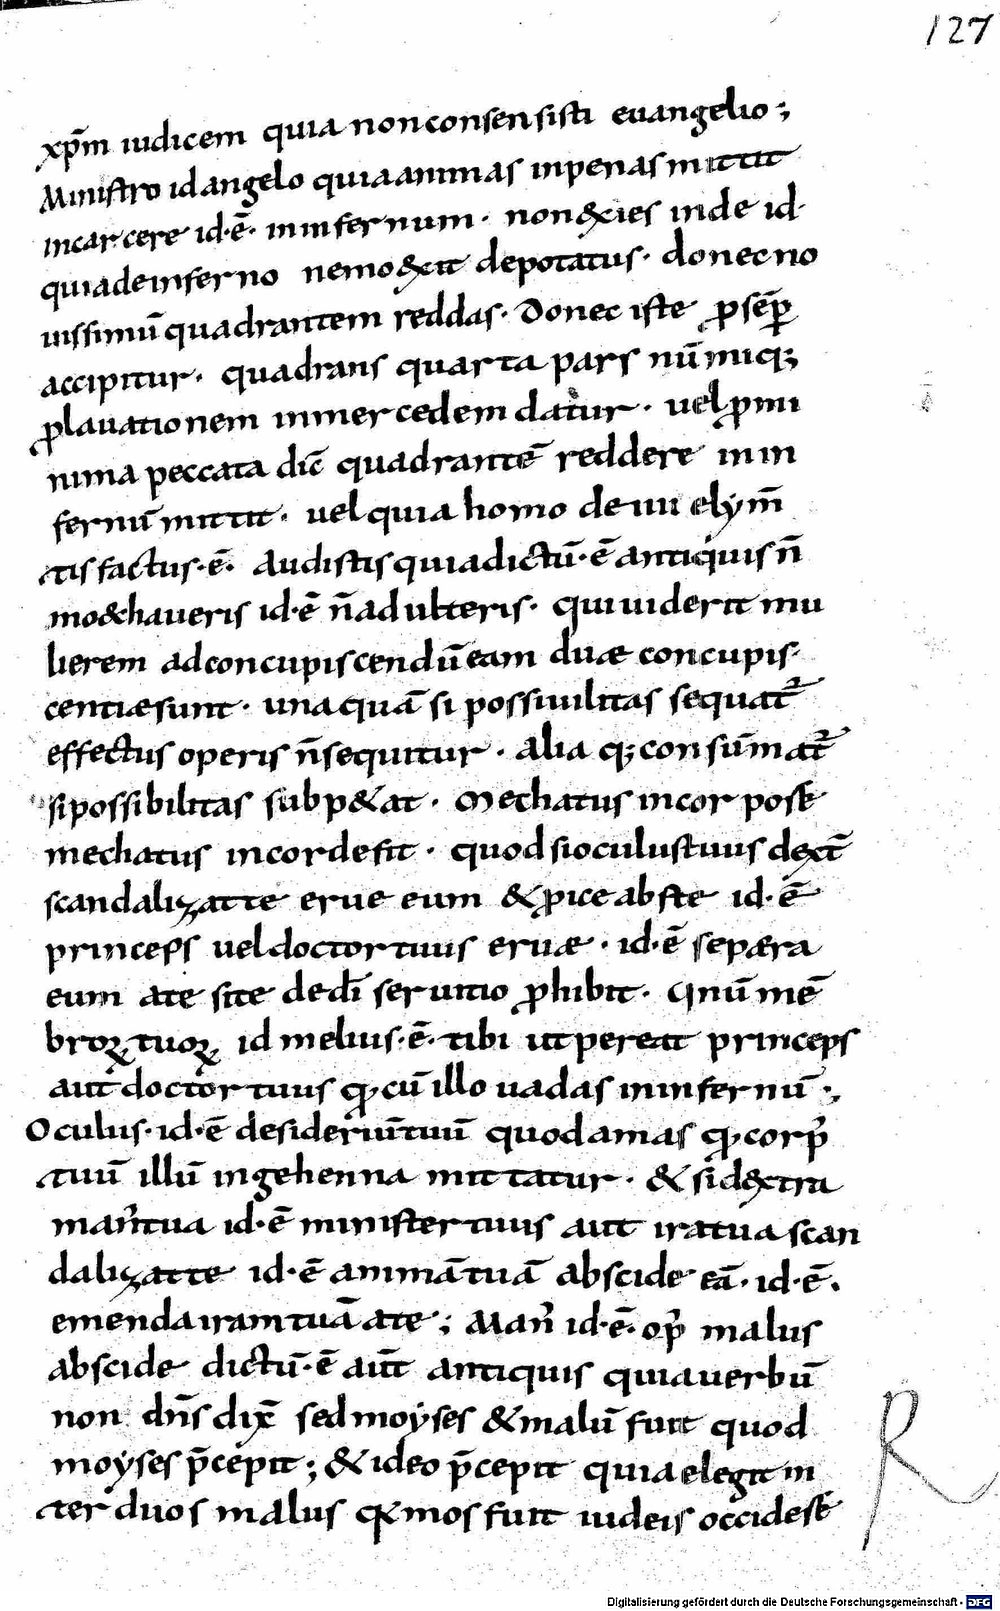 127
xp̄m iudicem quia non consensisti euangelio;
Ministro id angelo quia animas in penas mittit
in carcere id·ē· in infernum· non &xies inde id·
quia de inferno nemo &xit depotatus· donec no
uissimū quadrantem reddas· Donec iste p̄ sēp̄
accipitur· quadrans quarta pars nūmi q;
ꝓ lauationem in mercedem datur· uel ꝓ mi
nima peccata dic̄ quadrantē reddere in in
fernū mittit· uel quia homo de iiii elym̄
tis factus·ē· Audistis quia dictū·ē antiquis n̄
mo&haueris id·ē n̄ adulteris· qui uiderit mu
lierem ad concupiscendū eam duæ concupis·
centiæ sunt· una quā si possiuilitas sequat̄
effectus operis n̄ sequitur· alia q; consūmat̄
si possibilitas subp&at· Mechatus in cor pose
mechatus in corde fit· quod si oculus tuus dext̄
scandalizat te erue eum & ꝓice abste id·ē
princeps uel doctor tuus eruæ· id·ē sepæra
eum ate site dedī seruitio ꝓhibit· Qnū mē
broꝝ tuoꝝ id melius·ē· tibi ut pereat princeps
aut doctor tuus q̄ cū illo uadas in infernū;
Oculus·id·ē desideriū tuū quod amas q̄ corp̄
tuū illū in gehenna mittatur· & si d&xtra
man̄ tua id·ē minister tuus aut ira tua scan
dalizat te id·ē animā tuā abscide eā· id·ē·
emenda iram tuā ate; Man̄ id·ē· op̄ malus
abscide dictū·ē aūt antiquis quia uerbū
non dn̄s dix̄ sed moyses & malū fuit quod
moyses p̄cepit; & ideo p̄cepit quia elegit in
ter duos malus q̄ mos fuit iudeis occidesē
R
Digitalisierung gefördert durch die Deutsche Forschungsgemeinschaft - DFG